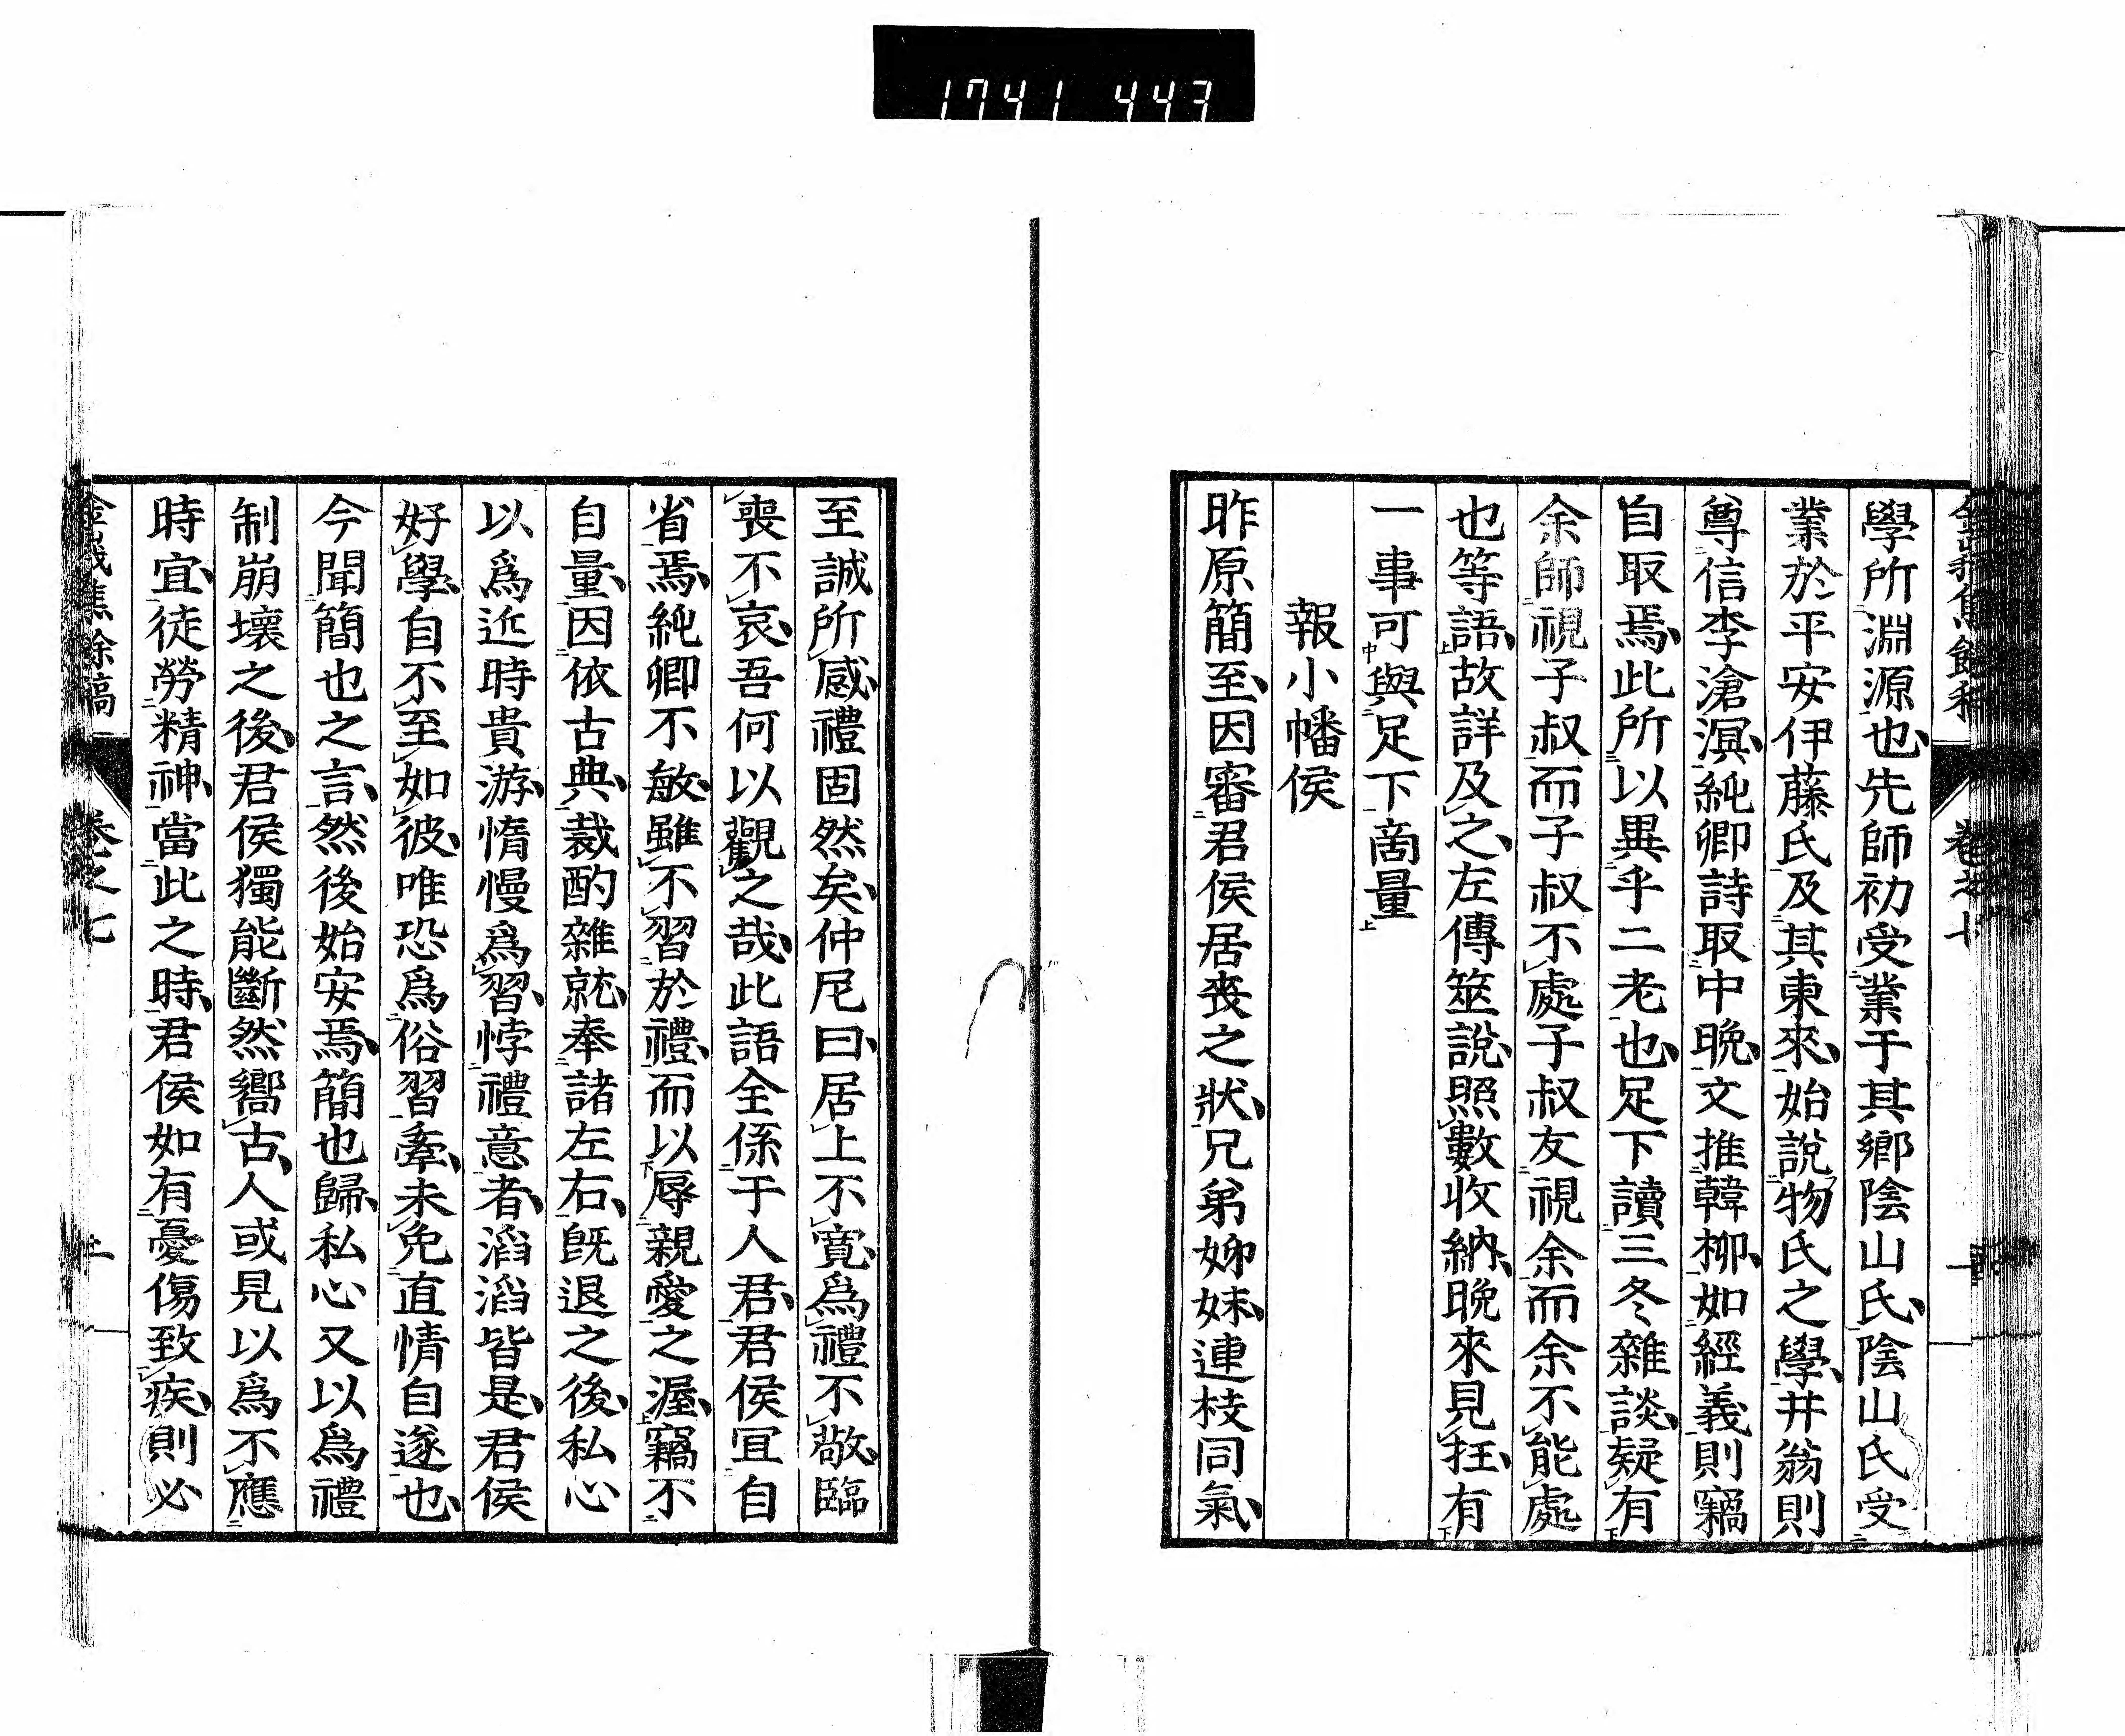 1741 447
學所淵源也先師初受業于其鄉陰山氏陰山氏受
業於平安伊藤氏及其東來始說物氏之學井翁則
尊信李滄溟純卿詩取中晩文推韓柳如經義則竊
自取焉此所以異乎二老也足下讀三冬雜談疑有
余師視子叔而子叔不處子叔友視余而余不能處
也等語故詳及之左傳筮說照數收納晩來見抂有
一事可與足下啇量
報小幡侯
昨原簡至因審君侯居喪之狀兄弟姊妹連枝同氣
至誠所感禮固然矣仲尼曰居上不寬爲禮不敬臨
喪不哀吾何以觀之哉此語全係于人君君侯冝自
省焉純卿不敏雖不習於禮而以辱親愛之渥竊不
自量因依古典裁酌雜就奉諸左右旣退之後私心
以爲近時貴游惰慢爲習悖禮意者滔滔皆是君侯
好學自不至如彼唯恐爲俗習牽未免直情自遂也
今聞簡也之言然後始安焉簡也歸私心又以爲禮
制崩壞之後君侯獨能斷然嚮古人或見以爲不應
時宜徒勞精神當此之時君侯如有憂傷致疾則必
餘稿 卷之七